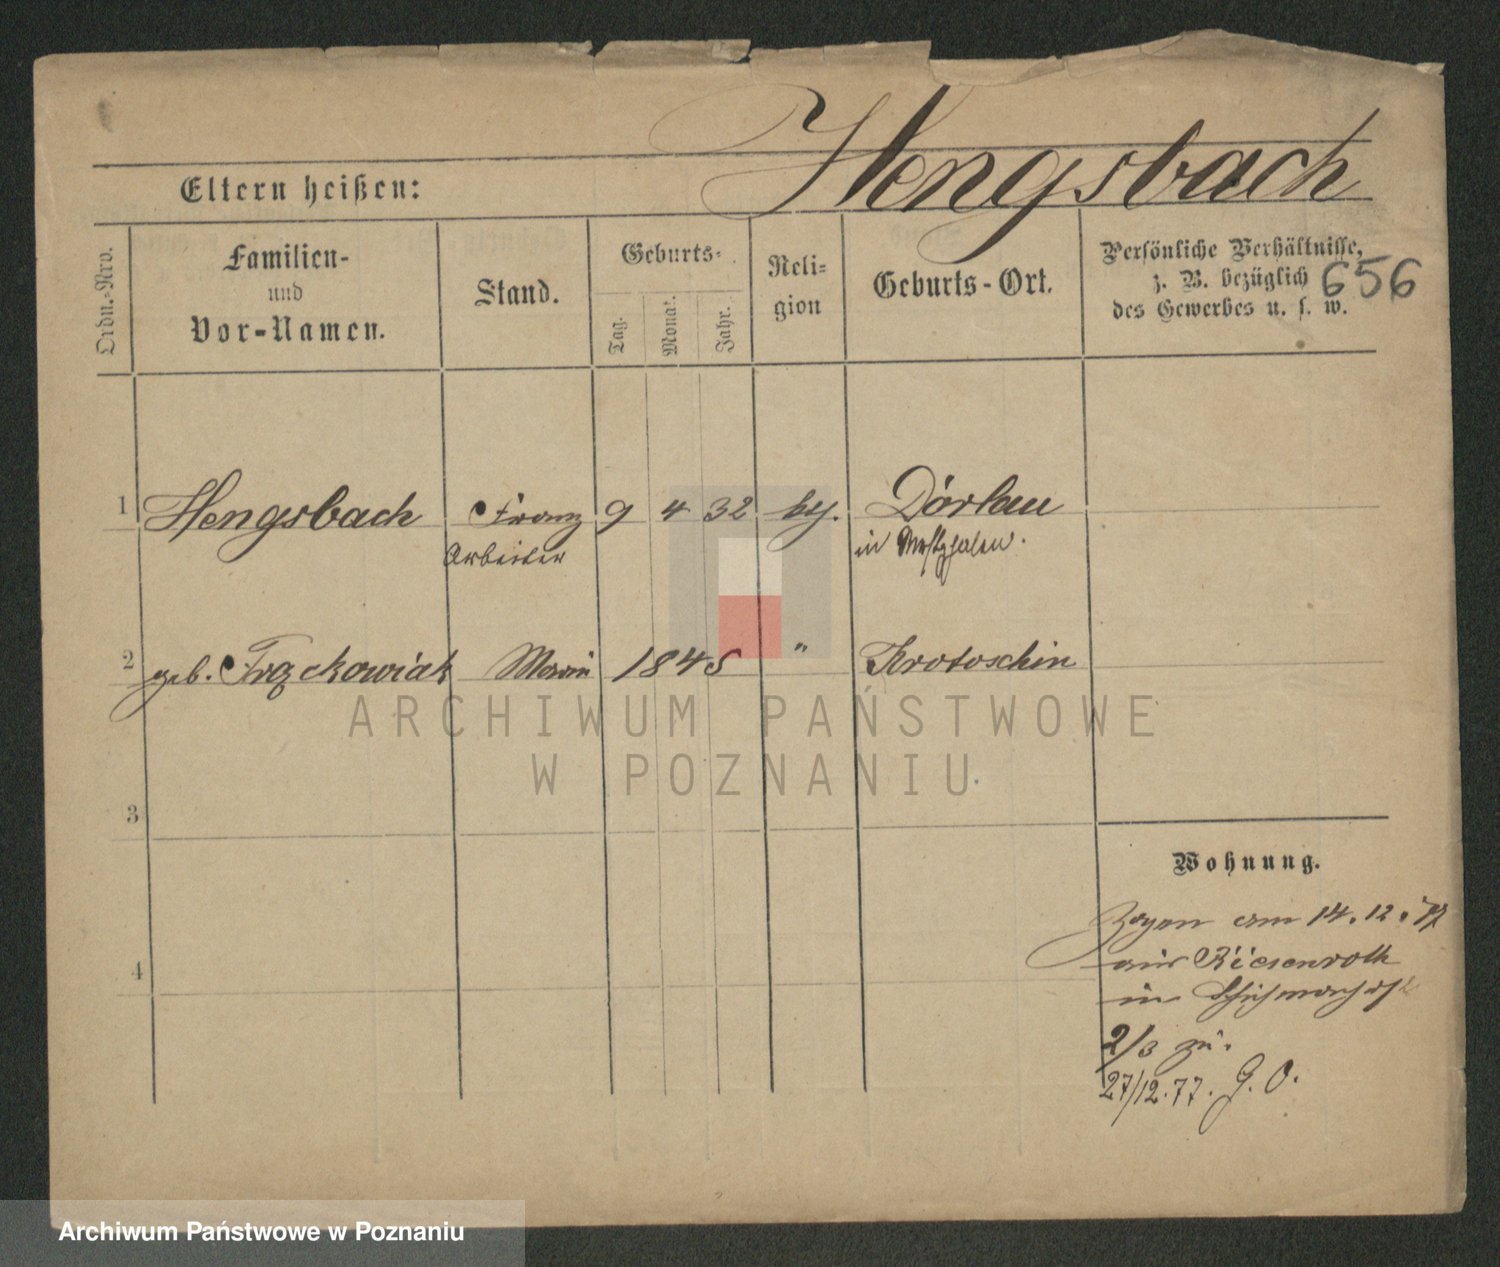 Hengsbach
Eltern heißen:
Ordn.-Nro.
Familien-
und
Vor-Namen.
Stand.
Geburts-
Tag.
Monat.
Jahr.
Reli-
gion
Geburts-Ort.
Persönliche Verhältnisse,
z. B. bezüglich
des Gewerbes u. s. w.
656
1 Hengsbach Franz 9 4 32 Dörlau
Arbeiter in Westphalen.
2 geb. Frąckowiak Marie 1845 " Krotoschin
3
4
Wohnung.
Zogen am 14.12.77
aus Riesenroth
in
2/3 zu.
27/12.77. G. O.
ARCHIWUM PAŃSTWOWE
W POZNANIU
Archiwum Państwowe w Poznaniu